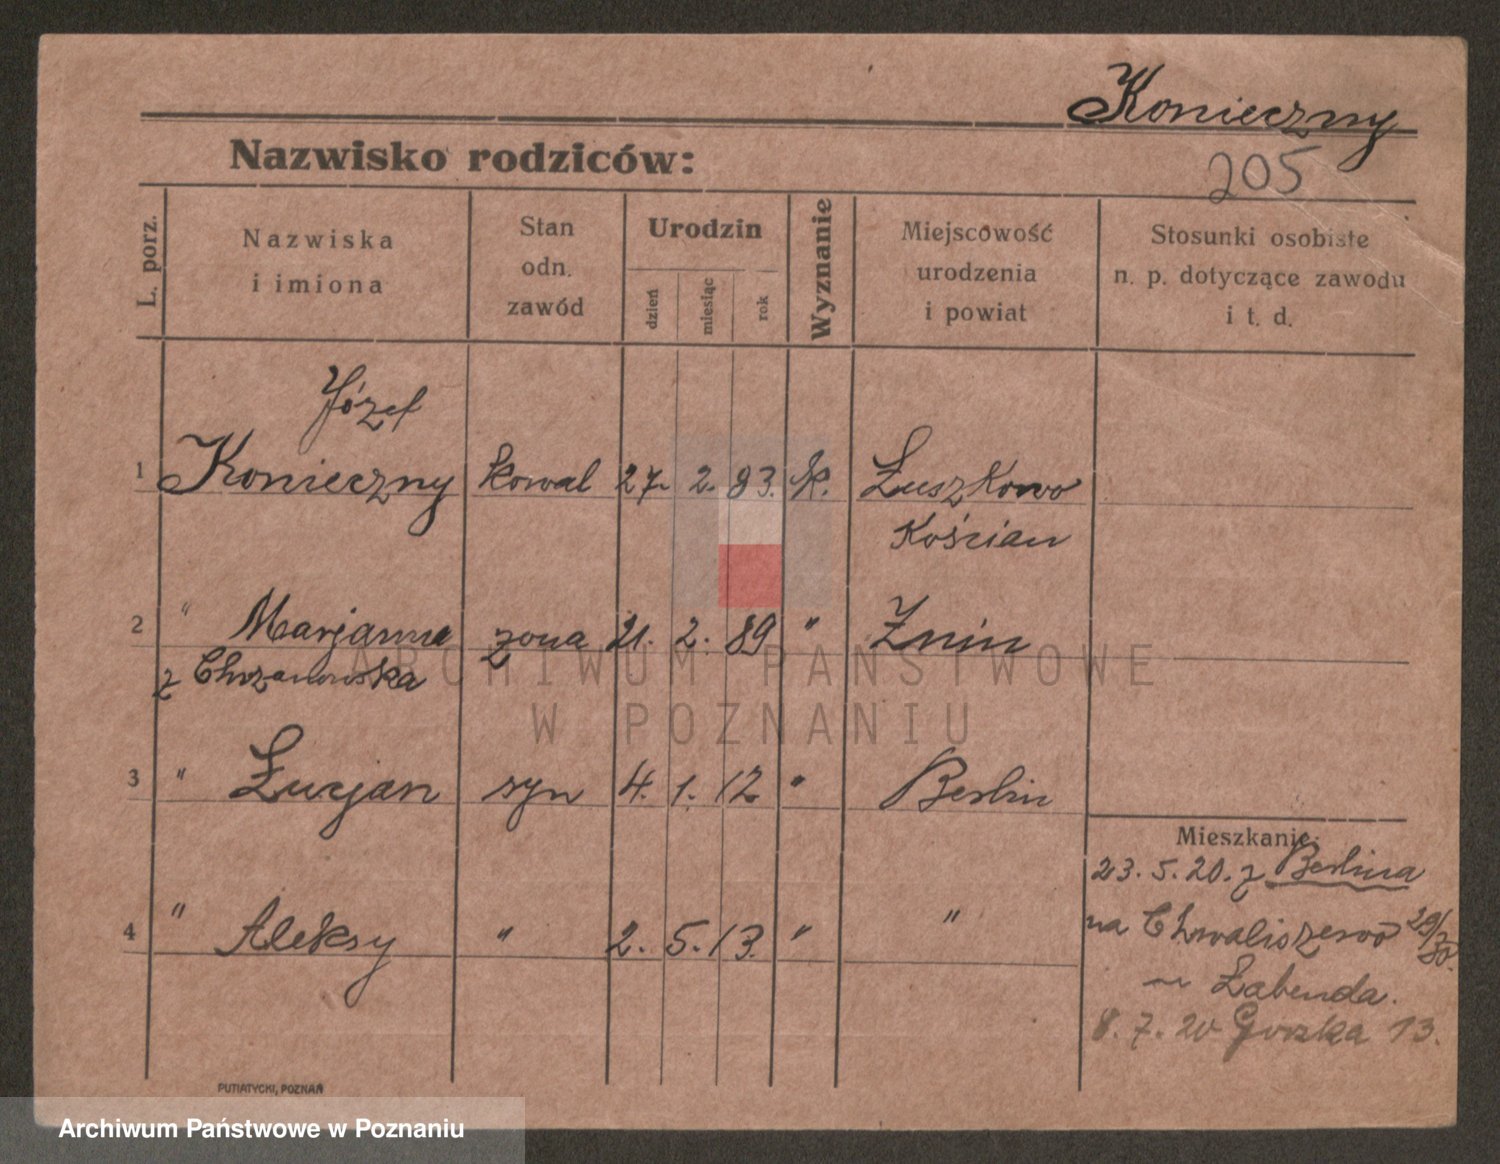 Konieczny
Nazwisko rodziców:
205
L. porz.
Nazwiska
i imiona
Stan
odn.
zawód
Urodzin
dzień
miesiąc
rok
Wyznanie
Miejscowość
urodzenia
i powiat
Stosunki osobiste
n. p. dotyczące zawodu
i t. d.
Józef
1 Konieczny kowal 27. 2. 83. k. Łuszkowo
Kościan
2 " Marjanna żona 21. 2. 89 " Żnin
z Chrzanowska
3 " Łucjan syn 4. 1. 12 " Berlin
4 " Aleksy " 2. 5. 13. " "
Mieszkanie:
23. 5. 20. z Berlina
na Chwaliszewo 29/30.
u Łabenda.
8. 7. 20 13.
PUTIATYCKI, POZNAŃ
ARCHIWUM PAŃSTWOWE
W POZNANIU
Archiwum Państwowe w Poznaniu